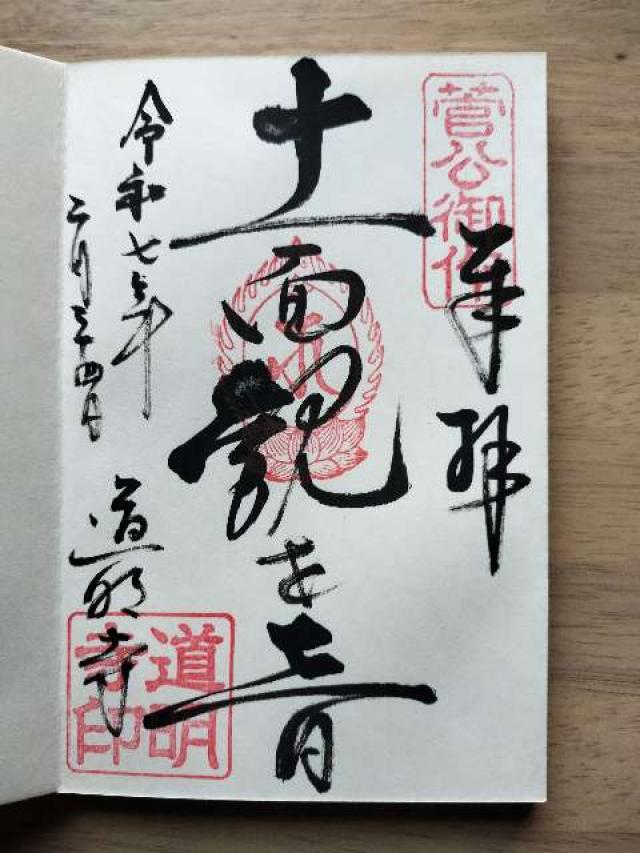 菅公御作
奉拝
十一面観世音
令和七年
二月二十四日
道明寺
道明寺印